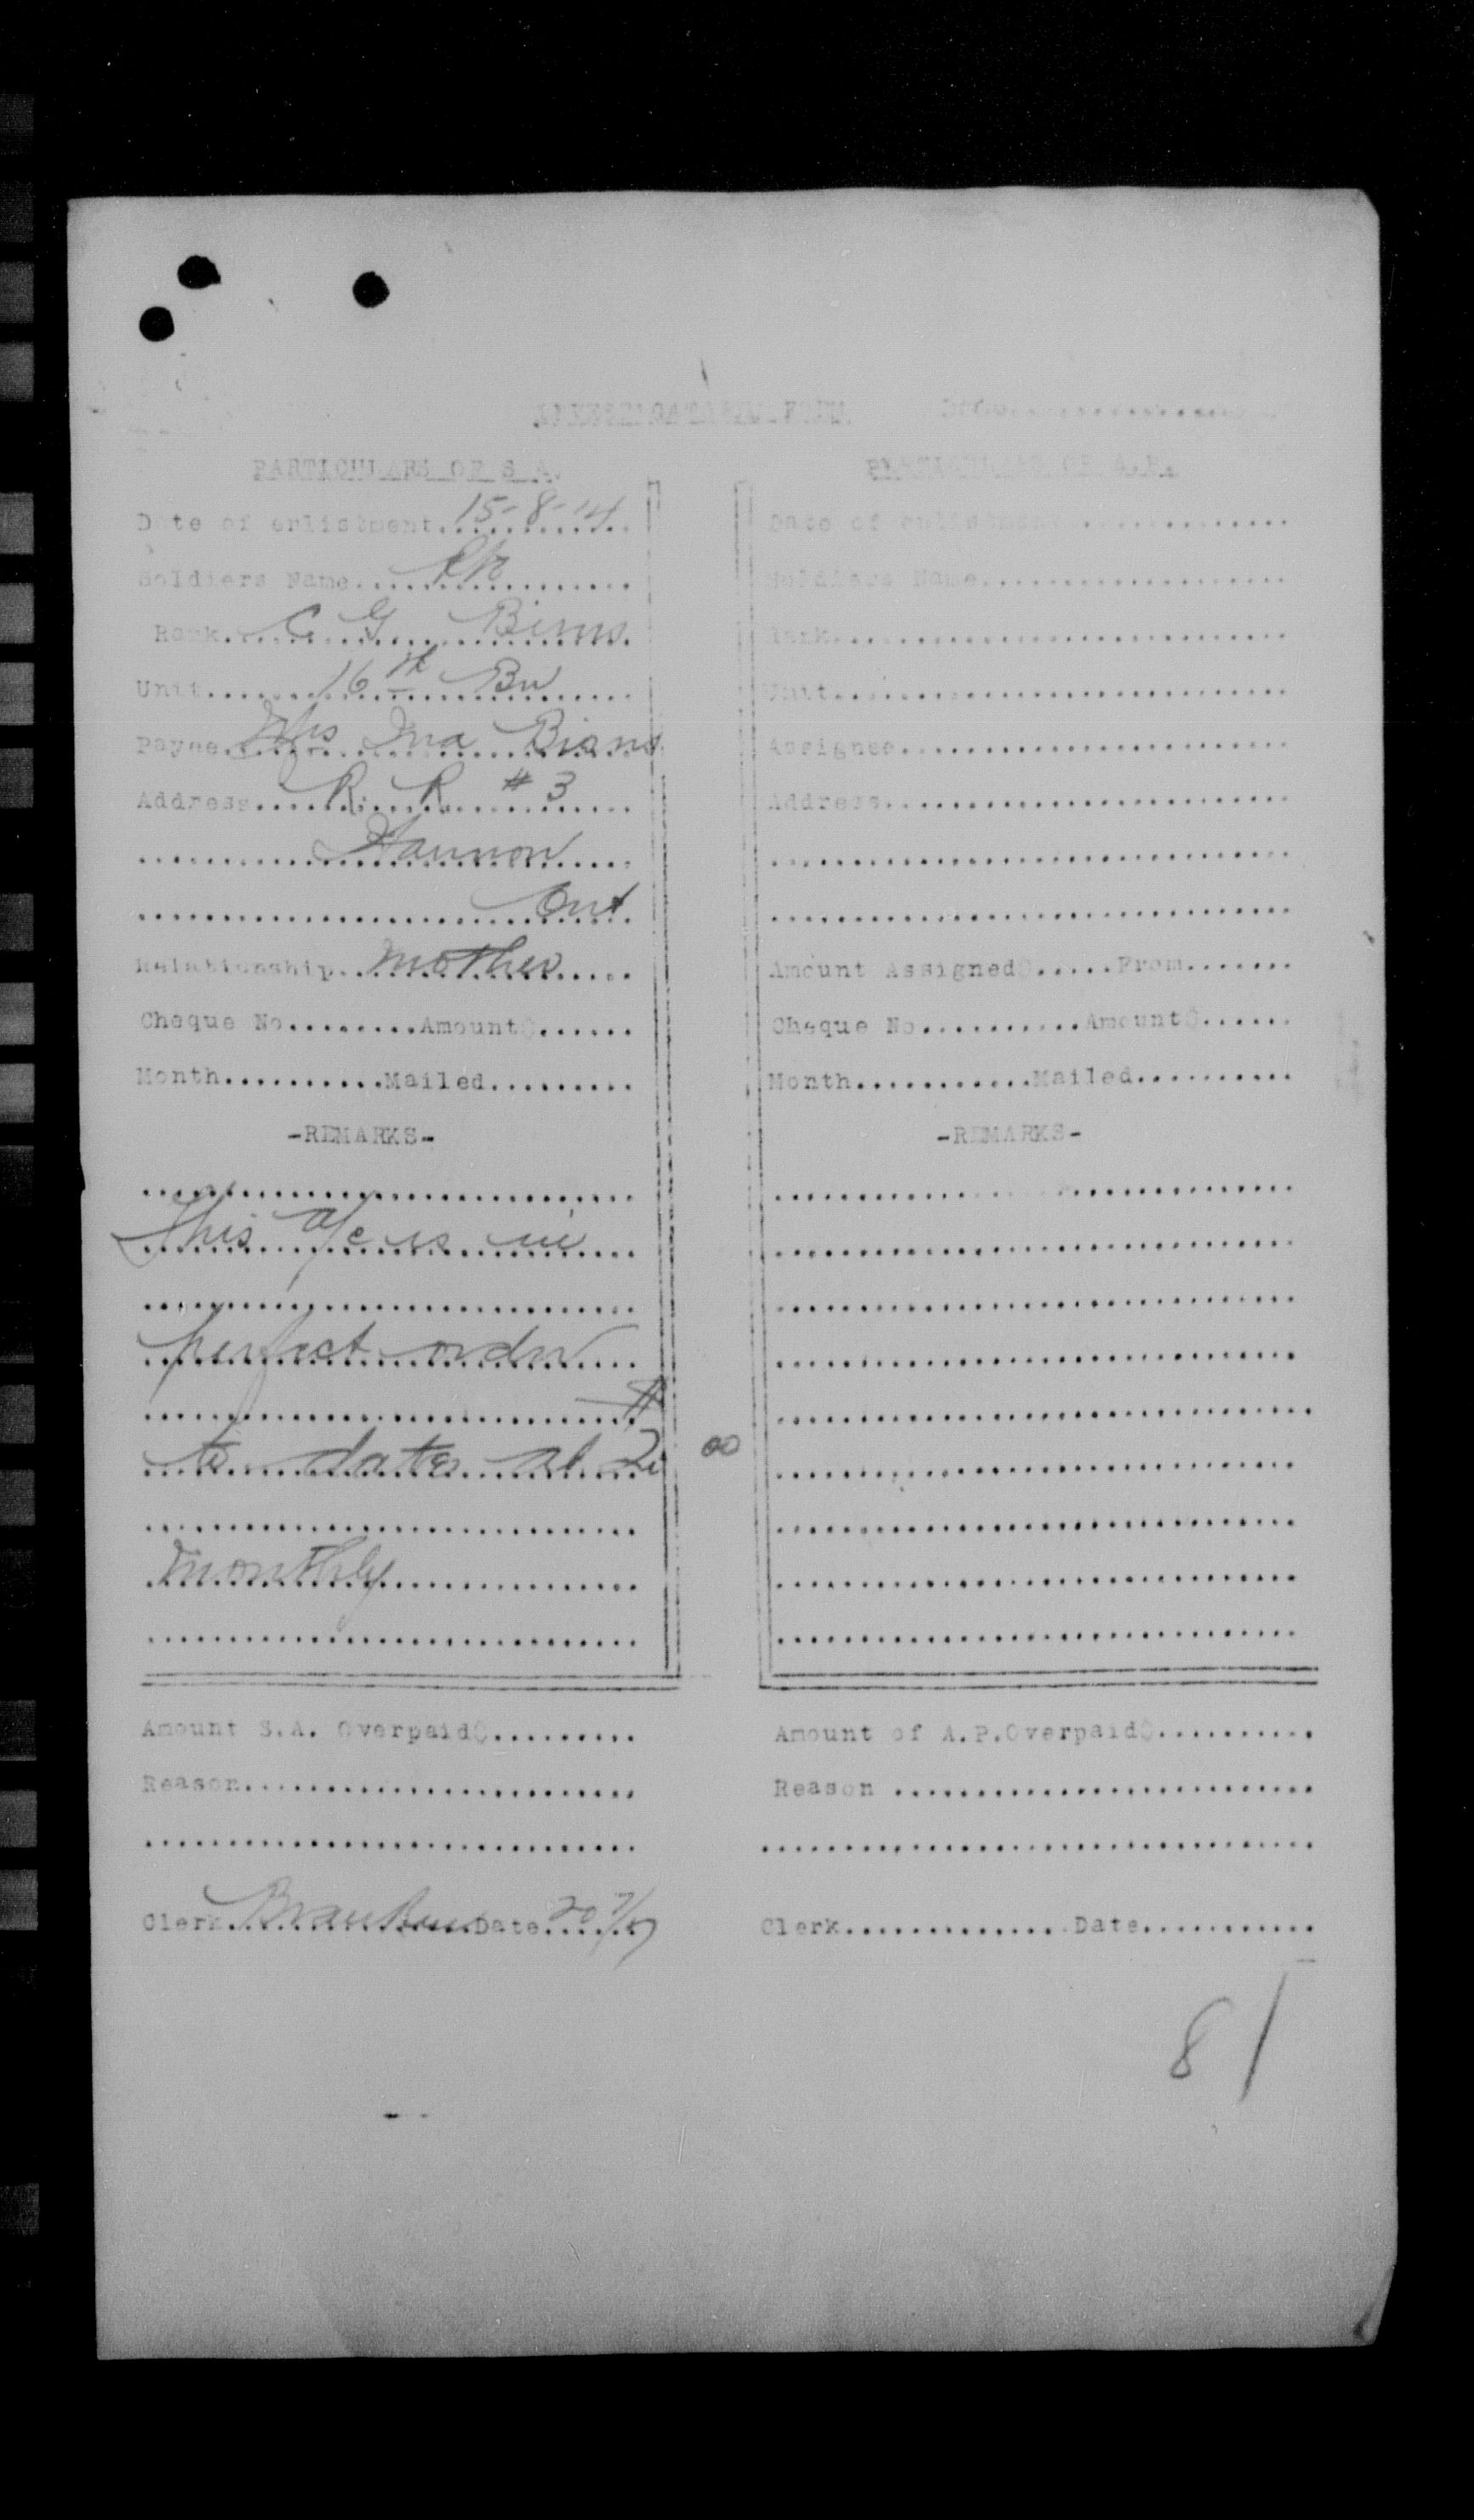 INVESTIGATION FORM. Date....................
PARTICULARS OF S A.
Date of enlistment 15-8-14
Soldiers Name Pte
Rank C G Binns
Unit 16th Bn
Payee Mrs Ina Binns
Address R. R. #3
Hannon
Ont
Relationship Mother
Cheque No.........Amount$......
Month..........Mailed.........
-REMARKS-
This a/c is in
perfect order
to date at $20 00
monthly
Amount S.A. Overpaid$.........
Reason........................
Clerk Date 20/7/17
PARTICULARS OF A.P.
Date of enlistment..............
Soldiers Name...................
Rank............................
Unit............................
Assignee........................
Address.........................
Amount Assigned$.....From.......
Cheque No..........Amount$......
Month...........Mailed..........
-REMARKS-
Amount of A.P.Overpaid$..........
Reason ..........................
Clerk..............Date...........
81